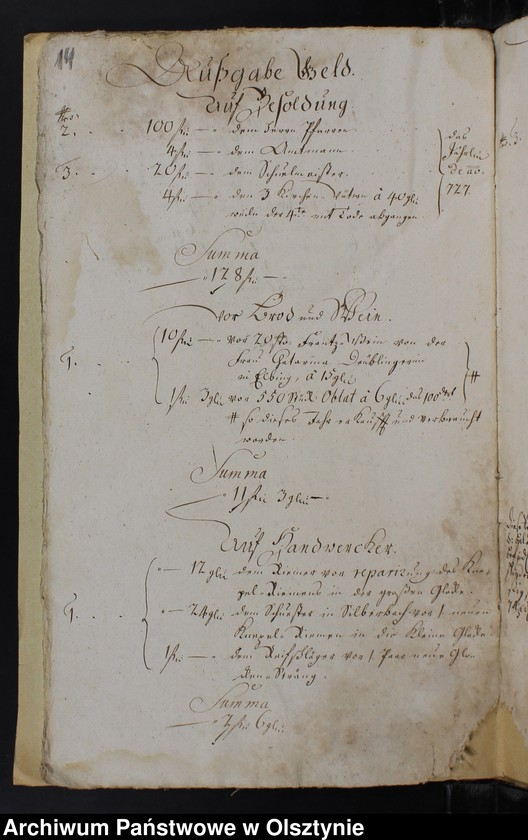 14
Außgabe Geld.
Auf Besoldung.
Nro:
2. 100 fl: — dem Herrn Pfarrer
4 fl: — dem Amtmann
3. 20 fl: — dem Schulmeister.
4 fl: — den 3 Kirchen-Vätern â 40 gl:
weiln der 4te mit Tode abgangen
das
de ao.
727.
Summa
128 fl: —
Vor Brod und Wein.
1. 10 fl: — vor 20 Frantz-Wein von der
Frau Catarina
in Elbing, â 15 gl:
1 fl: 3 gl: vor 550 Stück Oblat â 6 gl: das 100
# so dieses Jahr erkaufft und verbraucht
worden.
#
Summa
11 fl: 3 gl: —
Auf Handwercker.
1. — 12 gl: dem Riemer von reparirung des Knep-
pel-Riemens in der großen Glocke.
— 24 gl: dem Schuester in Silberbach vor 1 neuen
Kneppel-Riemen in die kleine Glocke
1 fl: — dem Reifschläger vor 1 Paar neue Glo-
cken-Sträng.
Summa
2 fl: 6 gl:
Archiwum Państwowe w Olsztynie